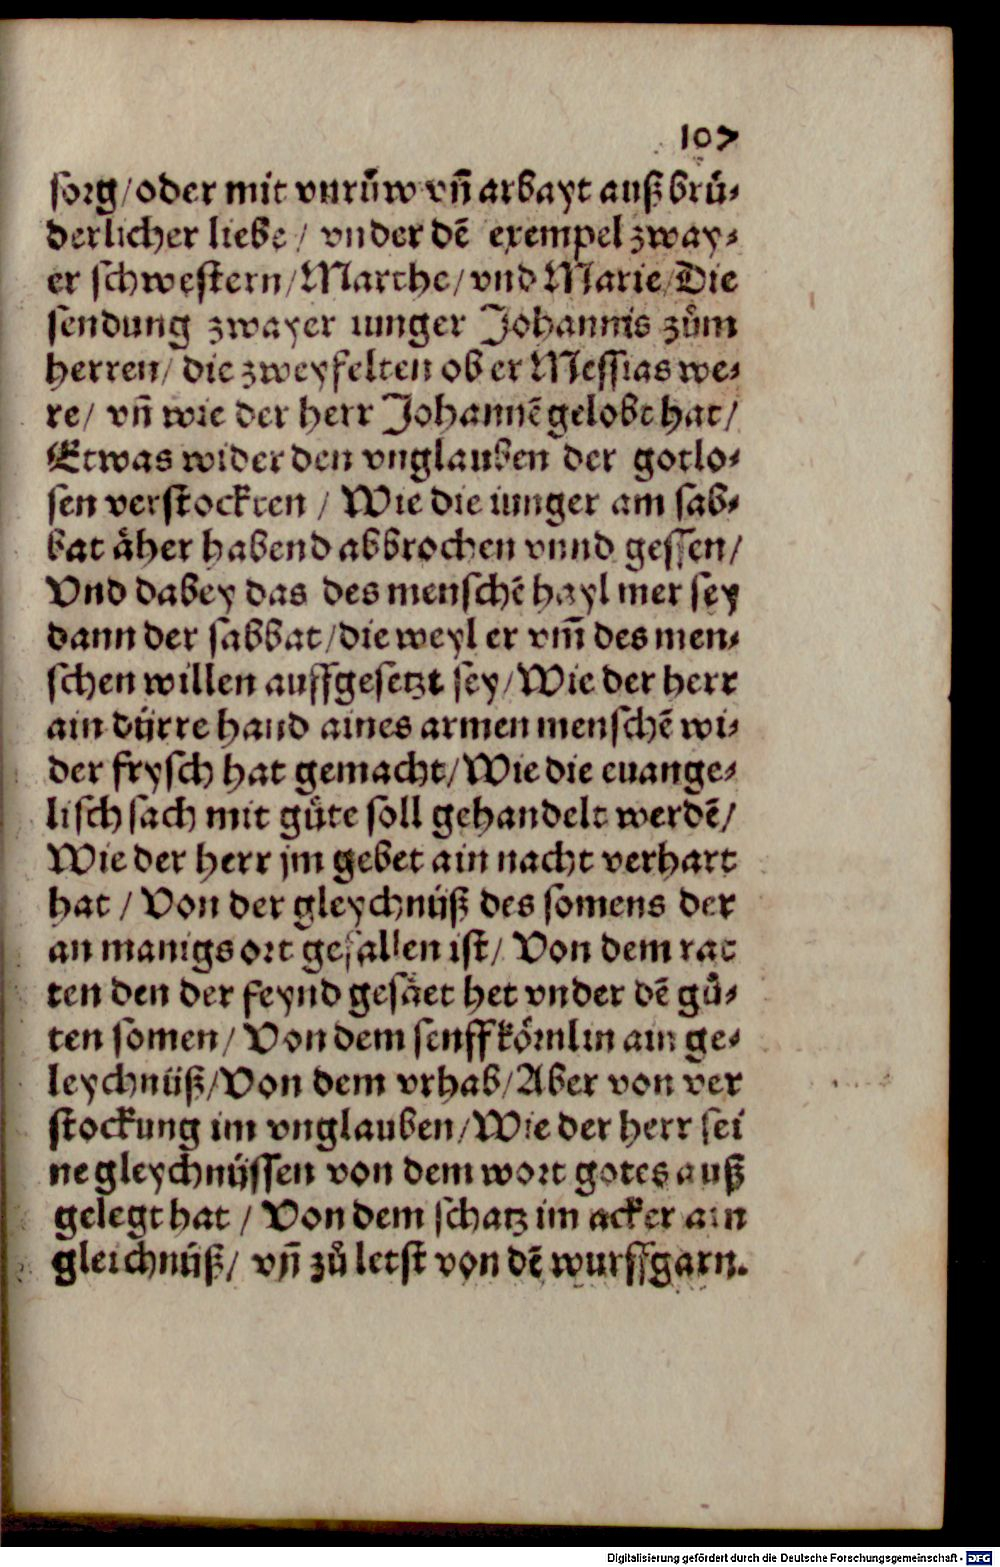 107
sorg/oder mit vnrůw vn̄ arbayt auß brů⸗
derlicher liebe/ vnder dē exempel zway⸗
er schwestern/Marthe/vnd Marie/Die
sendung zwayer iunger Johannis zům
herren/ die zweyfelten ob er Messias we⸗
re/ vn̄ wie der herr Johannē gelobt hat/
Etwas wider den vnglauben der gotlo⸗
sen verstockten/ Wie die iunger am sab⸗
bat äher habend abbrochen vnnd gessen/
Vnd dabey das des menschē hayl mer sey
dann der sabbat/die weyl er vm̄ des men⸗
schen willen auffgesetzt sey/Wie der herr
ain dürre hand aines armen menschē wi⸗
der frysch hat gemacht/Wie die euange⸗
lisch sach mit gůte soll gehandelt werdē/
Wie der herr jm gebet ain nacht verhart
hat/ Von der gleychnüß des somens der
an manigs ort gefallen ist/ Von dem rat
ten den der feynd gesäet het vnder dē gů⸗
ten somen/ Von dem senffkörnlin ain ge⸗
leychnüß/Von dem vrhab/Aber von ver
stockung im vnglauben/Wie der herr sei
ne gleychnüssen von dem wort gotes auß
gelegt hat/ Von dem schatz im acker ain
gleichnüß/ vn̄ zů letst von dē wurffgarn.
Digitalisierung gefördert durch die Deutsche Forschungsgemeinschaft - DFG